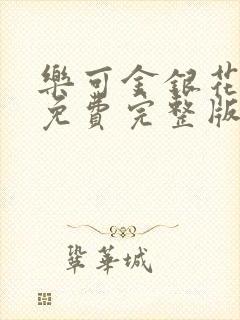 樂可金銀花
免費完整版
鞏華城